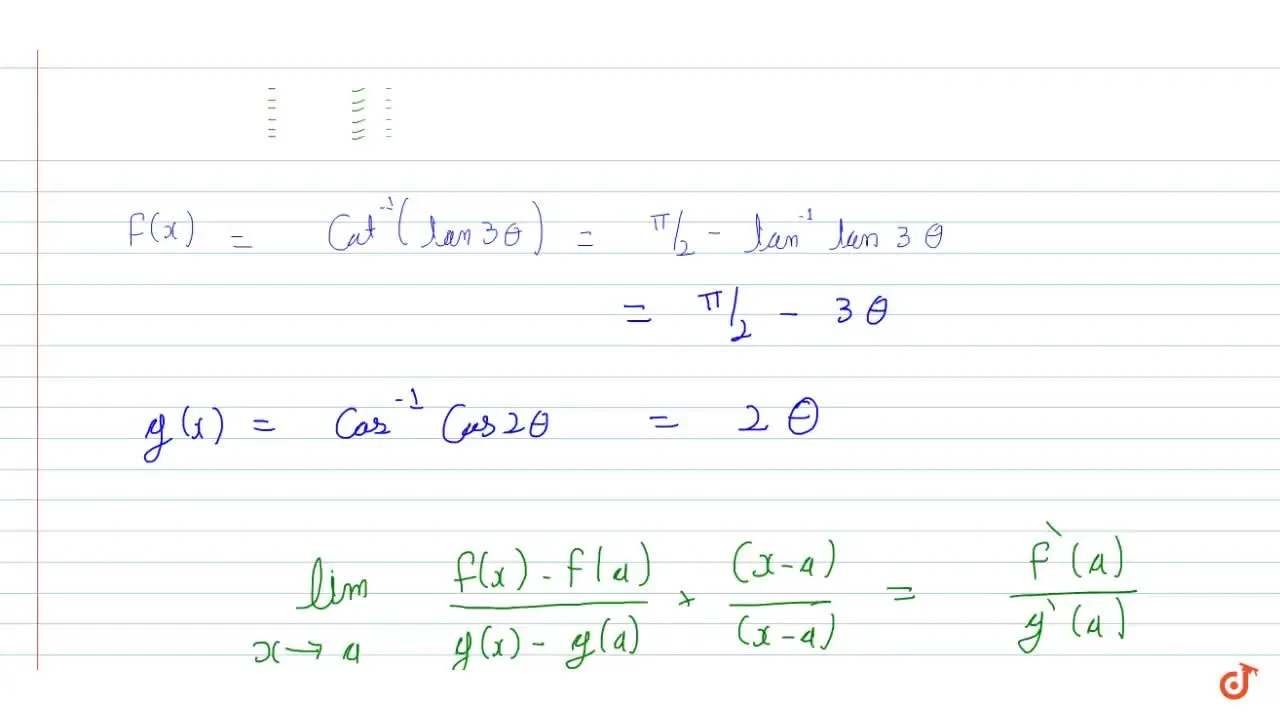 F(x) = Cot⁻¹(tan 3θ) = π/2 - tan⁻¹ tan 3θ
= π/2 - 3θ
g(x) = Cos⁻¹ Cos 2θ = 2θ
lim x→a (f(x) - f(a))/(g(x) - g(a)) × (x-a)/(x-a) = f`(a)/g`(a)